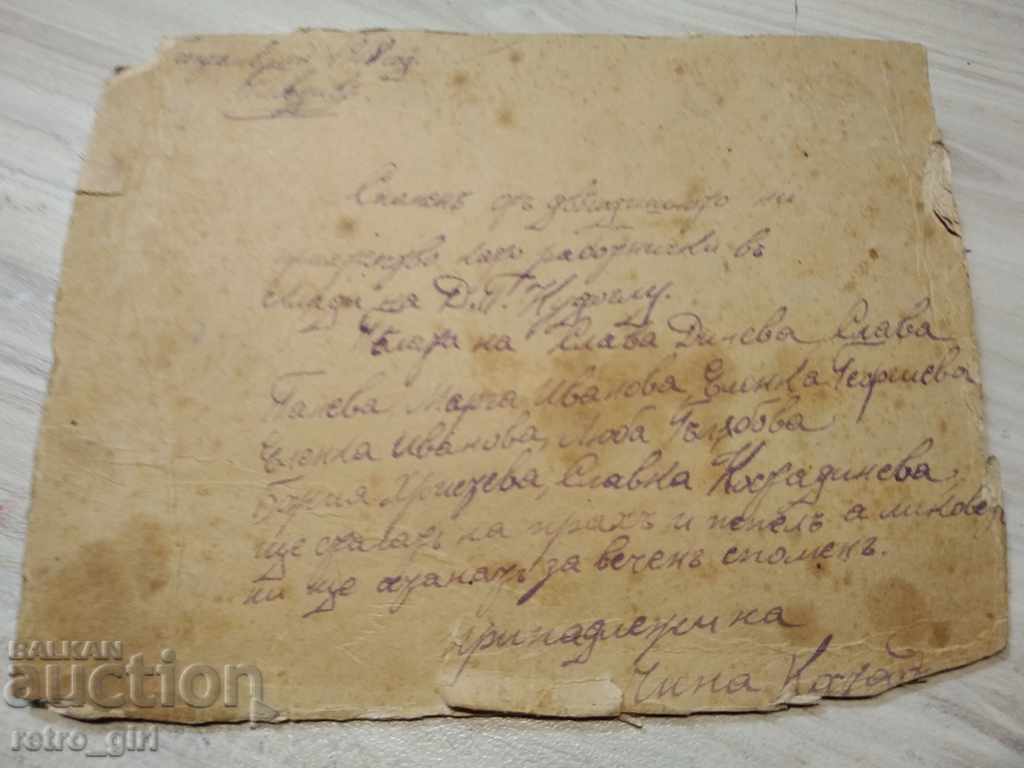 Споменъ отъ двегодишното ни
като работнички въ
склада на Д.П. Кудоглу.
Телата на Слава Дичева Слава
Панева Марга Иванова, Еленка Георгиева
Еленка Иванова, Люба Гълѫбова
Христева, Славка Костадинева,
ще станатъ на прахъ и пепелъ а ликовет
ни ще останатъ за веченъ споменъ.
принадлежи на
Чина Костад
BALKAN
auction
retro_girl